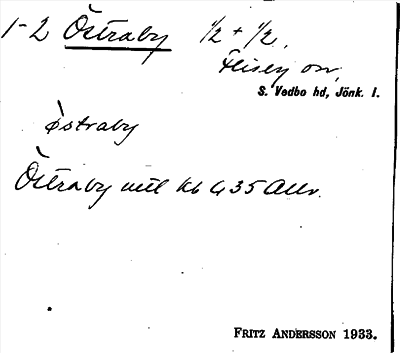 1-2 Östraby 1/2 + 1/2,
Flisby sn,
S. Vedbo hd, Jönk. l.
östraby
Östraby mtl Kb 635 Allv.
FRITZ ANDERSSON 1933.